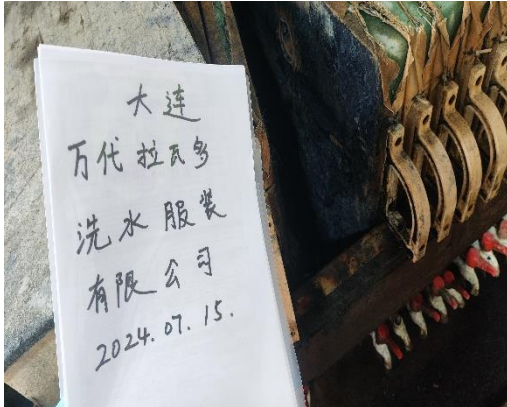 大连
万代拉瓦多
洗水服装
有限公司
2024.07.15.